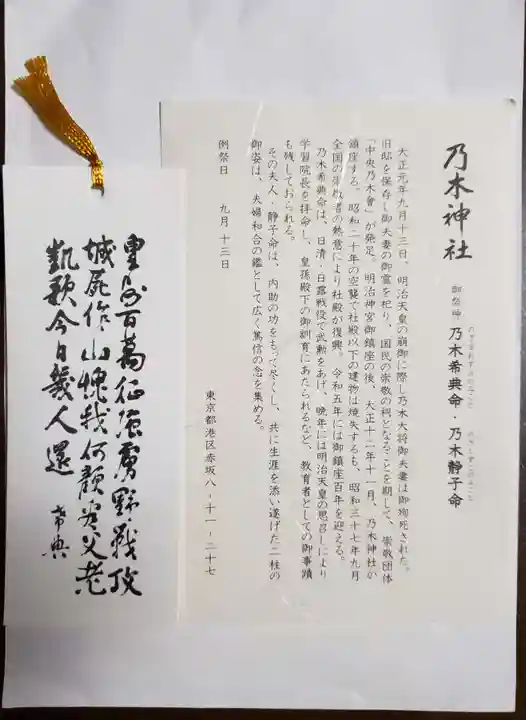 乃木神社
御祭神 乃木希典命・乃木靜子命
のぎまれすけのみこと のぎしずこのみこと
大正元年九月十三日、明治天皇の崩御に際し乃木大将御夫妻は御殉死された。
旧邸を保存し御夫妻の御霊を祀り、国民の崇敬の的となることを期して、崇敬団体
「中央乃木會」が発足。明治神宮御鎮座の後、大正十二年十一月、乃木神社が
鎮座する。昭和二十年の空襲で社殿以下の建物は焼失するも、昭和三十七年九月
全国の崇敬者の熱意により社殿が復興。令和五年には御鎮座百年を迎える。
乃木希典命は、日清・日露戦役で武勲をあげ、晩年には明治天皇の思召しにより
学習院長を拝命し、皇孫殿下の御訓育にあたられるなど、教育者としての御事蹟
も残しておられる。
その夫人・静子命は、内助の功をもって尽くし、共に生涯を添い遂げた二柱の
御姿は、夫婦和合の鑑として広く篤信の念を集める。
例祭日 九月十三日
東京都港区赤坂八-十一-二十七
皇師百萬征強虜野戰攻
城屍作山愧我何顔看父老
凱歌今日幾人還 希典